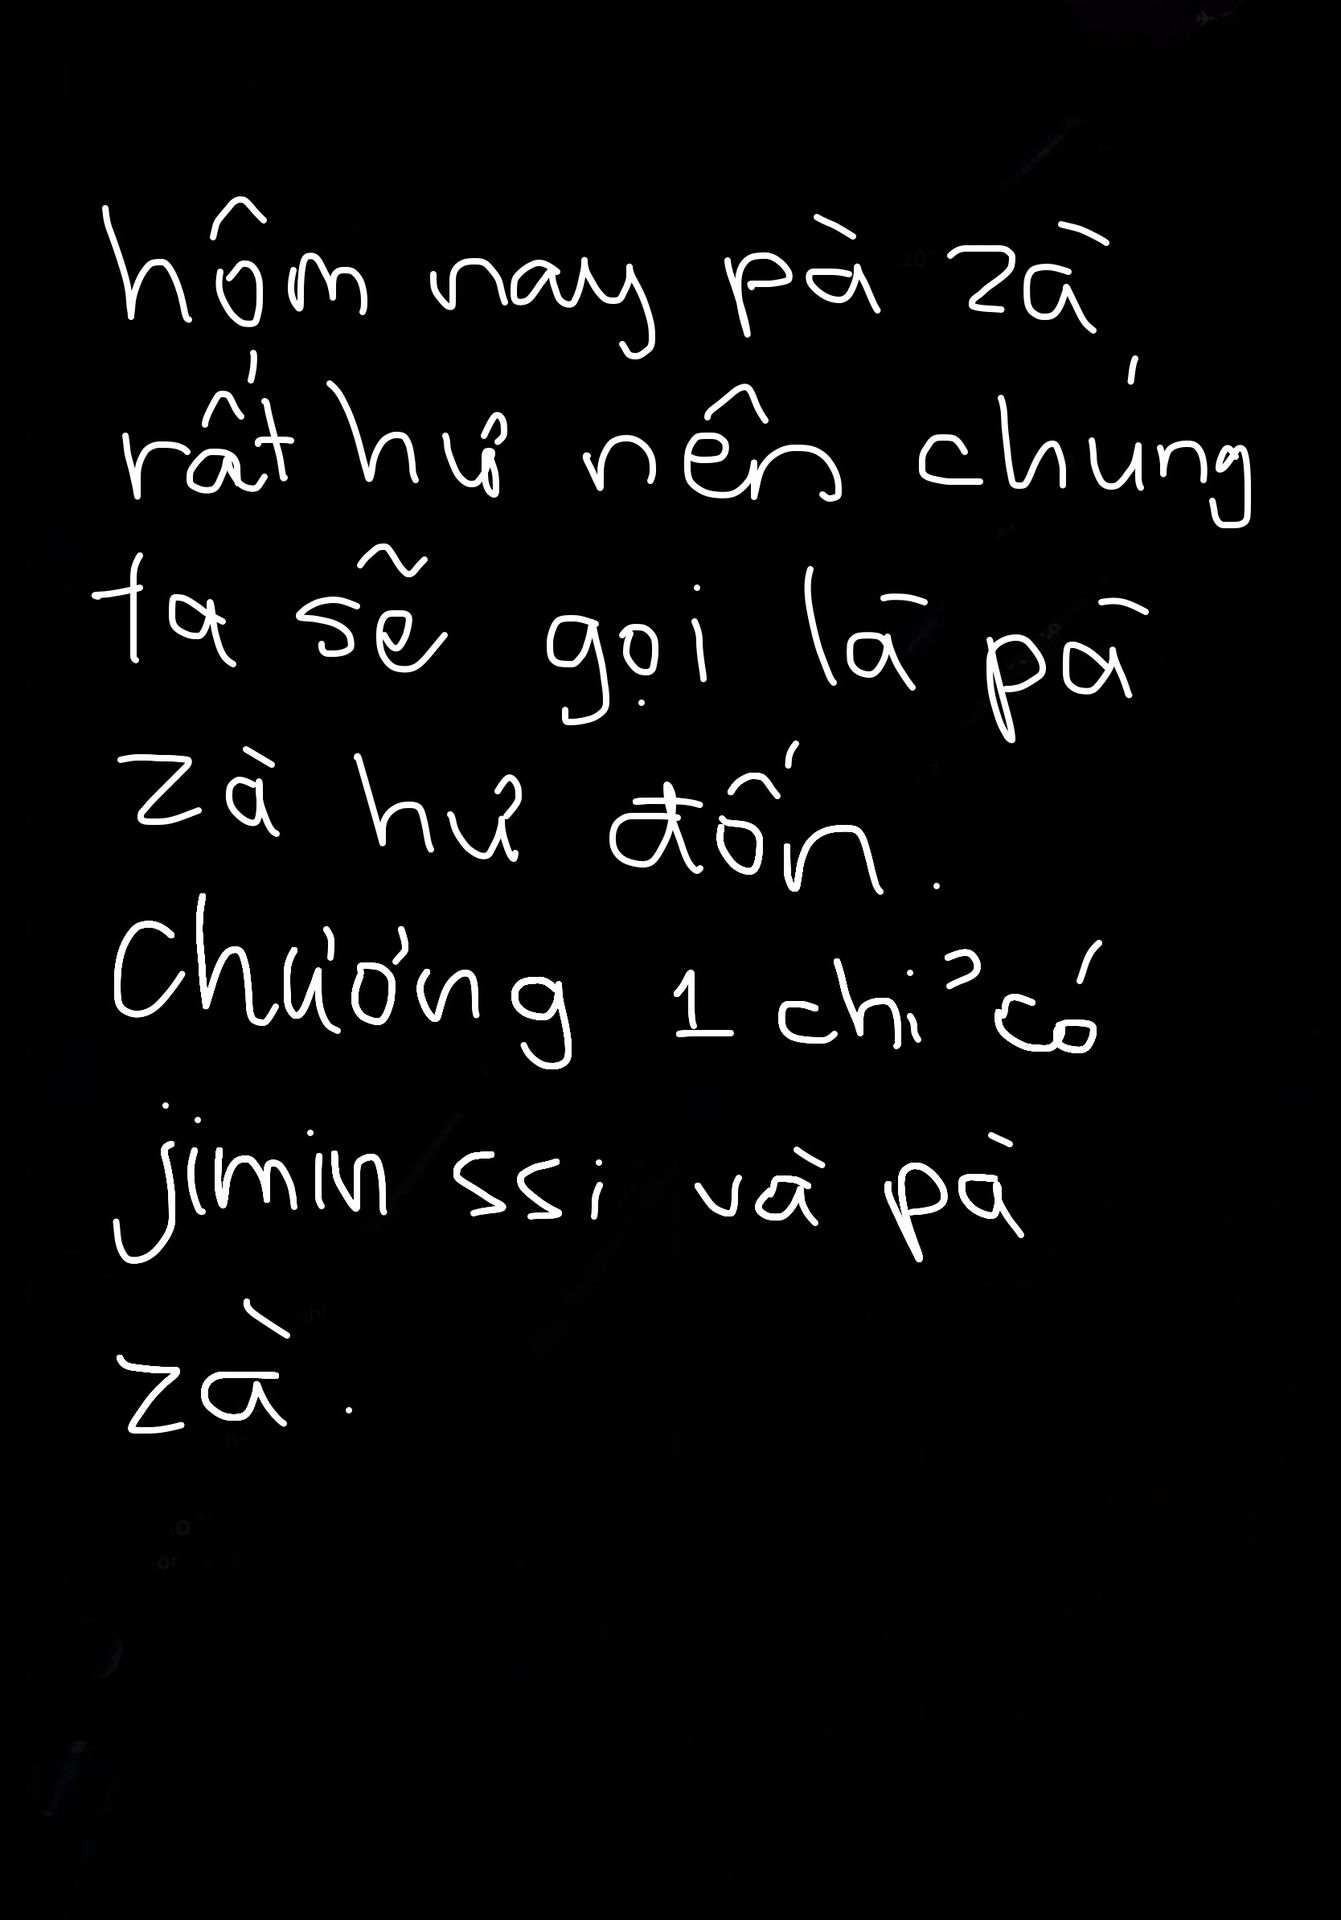 hôm nay pà zà
rất hư nên chúng
ta sẽ gọi là pà
zà hư đốn.
Chương 1 chỉ có
jimin ssi và pà
zà.